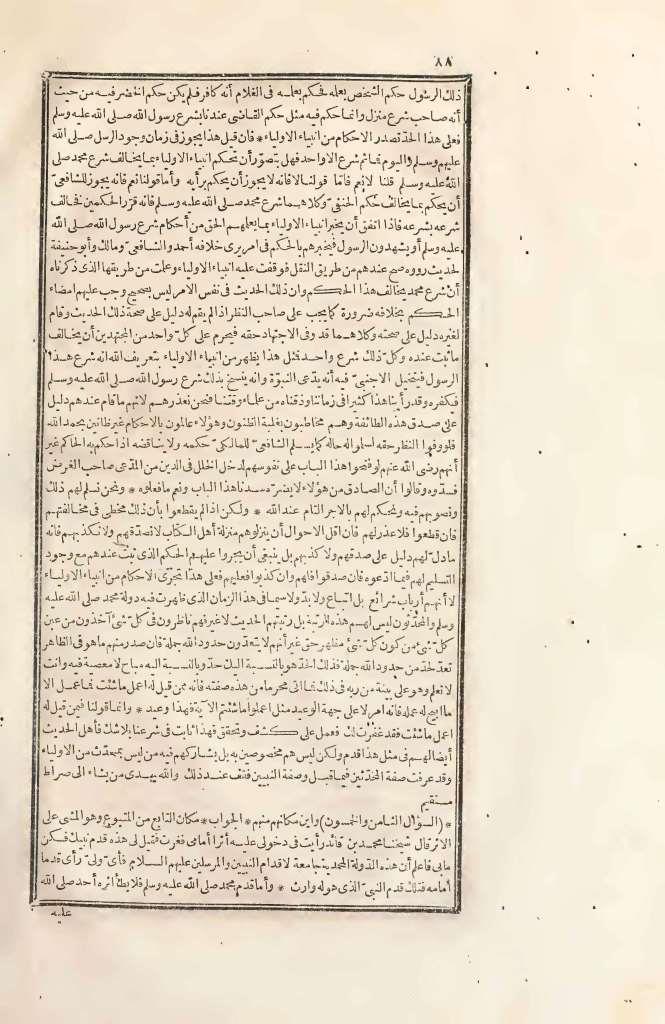 ٨٨
ذلك الرسول حكم الشخص بعلمه فحكم بعلمه فى الغلام أنه كافر فلم يكن حكم الخضر فيه من حيث
أنه صاحب شرع منزل وانما حكم فيه مثل حكم القاضى عندنا بشرع رسول الله صلى الله عليه وسلم
فعلى هذا الحد تصدر الاحكام من أنبياء الاولياء * فان قيل هذا يجوز فى زمان وجود الرسل صلى الله
عليهم وسلم واليوم فما ثم شرع الا واحد فهل يتصوّر أن تحكم انبياء الاولياء بما يخالف شرع محمد صلى
الله عليه وسلم قلنا لا نعم فأما قولنا لا فانه لا يجوز أن يحكم برأيه وأما قولنا نعم فانه يجوز للشافعىّ
أن يحكم بما يخالف حكم الحنفىّ وكلاهما شرع محمد صلى الله عليه وسلم فانه قرّر الحكمين فخالف
شرعه بشرعه فاذا اتفق أن يخبر انبياء الاولياء بما يعلمهم الحق من أحكام شرع رسول الله صلى الله
عليه وسلم أو يشهدون الرسول فيخبرهم بالحكم فى أمر يرى خلافه أحمد والشافعىّ ومالك وأبو حنيفة
لحديث رووه صح عندهم من طريق النقل فوقفت عليه انبياء الاولياء وعلمت من طريقها الذى ذكرناه
أن شرع محمد يخالف هذا الحكم وان ذلك الحديث فى نفس الامر ليس بصحيح وجب عليهم امضاء
الحكم بخلافه ضرورة كما يجب على صاحب النظر اذا لم يقم له دليل على صحة ذلك الحديث وقام
لغيره دليل على صحته وكلاهما قد وفى الاجتهاد حقه فيحرم على كلّ واحد من المجتهدين أن يخالف
ما ثبت عنده وكلّ ذلك شرع واحد فمثل هذا يظهر من انبياء الاولياء بتعريف الله انه شرع هذا
الرسول فيتخيل الاجنبىّ فيه أنه يدّعى النبوّة وانه ينسخ بذلك شرع رسول الله صلى الله عليه وسلم
فيكفره وقد رأينا هذا كثيرا فى زماننا وذقناه من علماء وقتنا فنحن نعذرهم لانهم ما قام عندهم دليل
على صدق هذه الطائفة وهم مخاطبون بغلبة الظنون وهؤلاء عالمون بالاحكام غير ظانين بحمد الله
فلو وفوا النظر حقه لسلموا له حاله كما يسلم الشافعىّ للمالكىّ حكمه ولا ينقضه اذا حكم به الحاكم غير
أنهم رضى الله عنهم لو فتحوا هذا الباب على نفوسهم لدخل الخلل فى الدين من المدّعى صاحب الغرض
فسدّوه وقالوا أن الصادق من هؤلاء لا يضرّه سدّنا هذا الباب ونعم ما فعلوه * ونحن نسلم لهم ذلك
ونصوّبهم فيه ونحكم لهم بالاجر التام عند الله * ولكن اذا لم يقطعوا بأن ذلك مخطئ فى مخالفتهم
فان قطعوا فلا عذر لهم فان اقل الاحوال أن ينزلوهم منزلة أهل الكتاب لا نصدّقهم ولا نكذبهم فانه
ما دلّ لهم دليل على صدقهم ولا كذبهم بل ينبغى أن يجروا عليهم الحكم الذى ثبت عندهم مع وجود
التسليم لهم فيما ادّعوه فان صدقوا فلهم وان كذبوا فعليهم فعلى هذا تجرى الاحكام من انبياء الاولياء
لا أنهم أرباب شرائع بل اتباع ولا بدّ ولا سيما فى هذا الزمان الذى ظهرت فيه دولة محمد صلى الله عليه
وسلم والمحدّثون ليس لهم هذه الرتبة بل رتبتهم الحديث لا غير فهم ناظرون فى كلّ شئ آخذون من عين
كلّ شئ من كون كلّ شئ مظهر حق غير أنهم لا يتعدّون حدود الله جملة فان صدر منهم ما هو فى الظاهر
تعدّ لحدّ من حدود الله جملة فذلك الحدّ هو بالنسبة اليك حدّ وبالنسبة اليه مباح لا معصية فيه وانت
لا تعلم وهو على بينة من ربه فى ذلك فما اتى محرما من هذه صفته فانه ممن قيل له اعمل ما شئت فما عمل الا
ما ابيح له عمله فانه امر لا على جهة الوعيد مثل اعملوا ما شئتم الآية فهذا وعيد * وانما قولنا فيمن قيل له
اعمل ما شئت فقد غفرت لك فعمل على كشف وتحقق فهذا ثابت فى شرعنا بلا شك فأهل الحديث
أيضا لهم فى مثل هذا قدم ولكن ليس هم مخصوصين به بل يشاركهم فيه من ليس بمحدّث من الاولياء
وقد عرفت صفة المحدّثين فيما قبل وصفة النبيين فقف عند ذلك والله يهدى من يشاء الى صراط
مستقيم
* (السؤال الثامن والخمسون) وأين مكانهم منهم * الجواب * مكان التابع من المتبوع وهو المشى على
الاثر قال شيخنا محمد بن قائد رأيت فى دخولى عليه أثرا أمامى فغرت فقيل لى هذه قدم نبيك فسكن
ما بى فاعلم أن هذه الدولة المحمدية جامعة لاقدام النبيين والمرسلين عليهم السلام فأىّ ولىّ رأى قدما
أمامه فتلك قدم النبىّ الذى هو له وارث * وأما قدم محمد صلى الله عليه وسلم فلا يطأ اثره أحد صلى الله
عليه